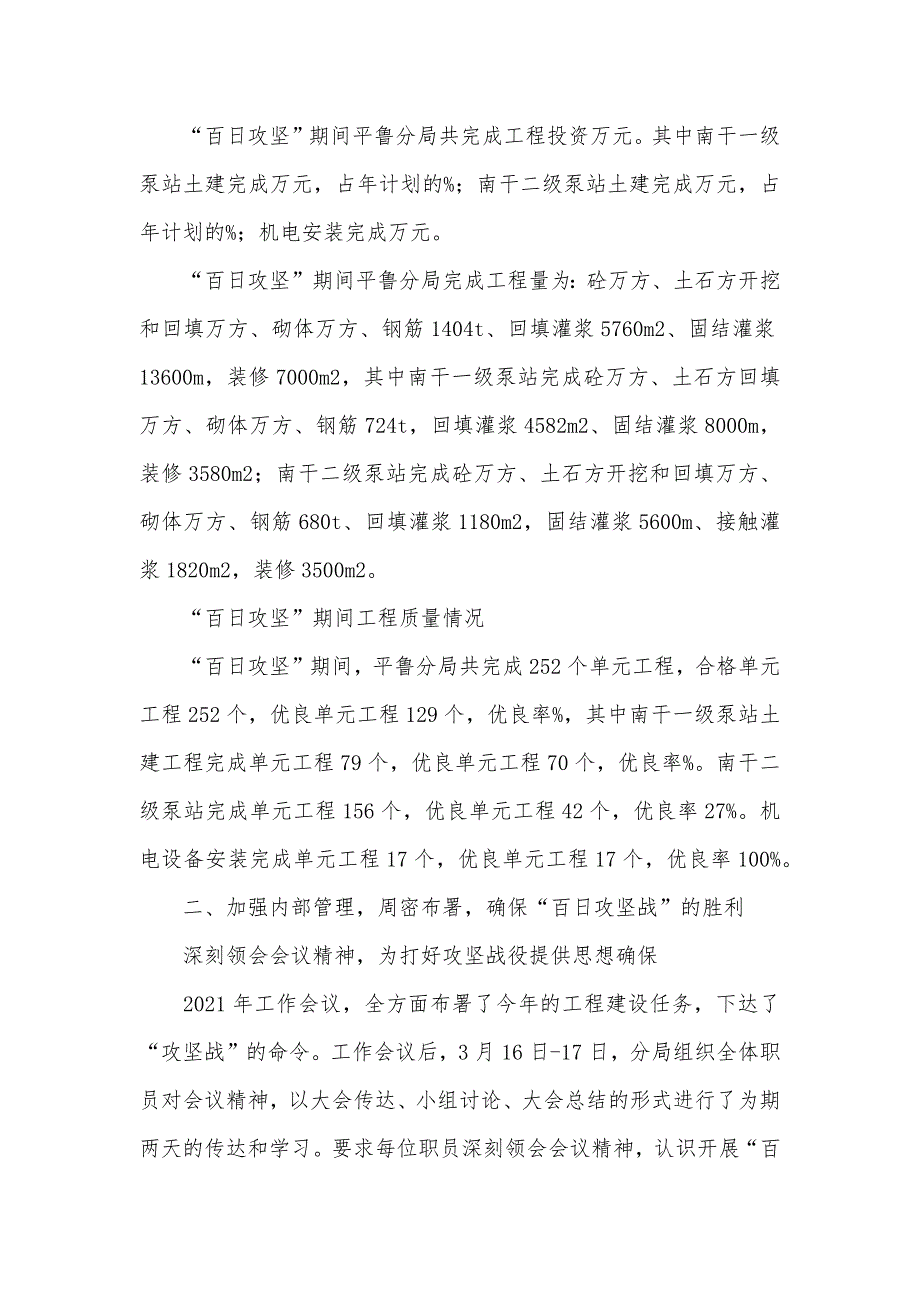 “百日攻坚”期间平鲁分局共完成工程投资万元。其中南干一级
泵站土建完成万元，占年计划的%；南干二级泵站土建完成万元，占
年计划的%；机电安装完成万元。
“百日攻坚”期间平鲁分局完成工程量为：砼万方、土石方开挖
和回填万方、砌体万方、钢筋 1404t、回填灌浆 5760m2、固结灌浆
13600m，装修 7000m2，其中南干一级泵站完成砼万方、土石方回填
万方、砌体万方、钢筋 724t，回填灌浆 4582m2、固结灌浆 8000m，
装修 3580m2；南干二级泵站完成砼万方、土石方开挖和回填万方、
砌体万方、钢筋 680t、回填灌浆 1180m2，固结灌浆 5600m、接触灌
浆 1820m2，装修 3500m2。
“百日攻坚”期间工程质量情况
“百日攻坚”期间，平鲁分局共完成 252 个单元工程，合格单元
工程 252 个，优良单元工程 129 个，优良率%，其中南干一级泵站土
建工程完成单元工程 79 个，优良单元工程 70 个，优良率%。南干二
级泵站完成单元工程 156 个，优良单元工程 42 个，优良率 27%。机
电设备安装完成单元工程 17 个，优良单元工程 17 个，优良率 100%。
二、加强内部管理，周密布署，确保“百日攻坚战”的胜利
深刻领会会议精神，为打好攻坚战役提供思想确保
2021 年工作会议，全方面布署了今年的工程建设任务，下达了
“攻坚战”的命令。工作会议后，3 月 16 日-17 日，分局组织全体职
员对会议精神，以大会传达、小组讨论、大会总结的形式进行了为期
两天的传达和学习。要求每位职员深刻领会会议精神，认识开展“百